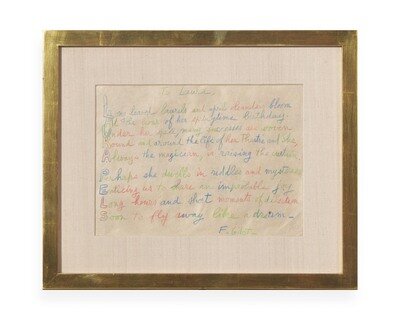 To Laura,
leaved laurels and april bloom
At the of her springtime birthday
Under her spell, many are woven
Round and around the life of her Theatre and she,
Always the magician, in raising the curtain,
Perhaps she dwells in riddles and mysteries
Enticing us to share an improbable joy
Long hours and short moments of
Soon to fly away like a dream –
F. Gilot